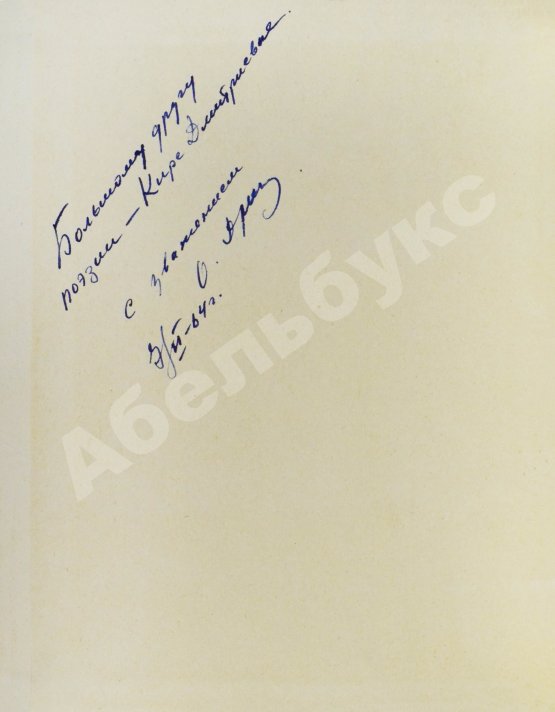 Большому другу
поэзии – Кире Дмитриевне.
с уважением
О. Дриз
3/VI-64г.
Абельбукс